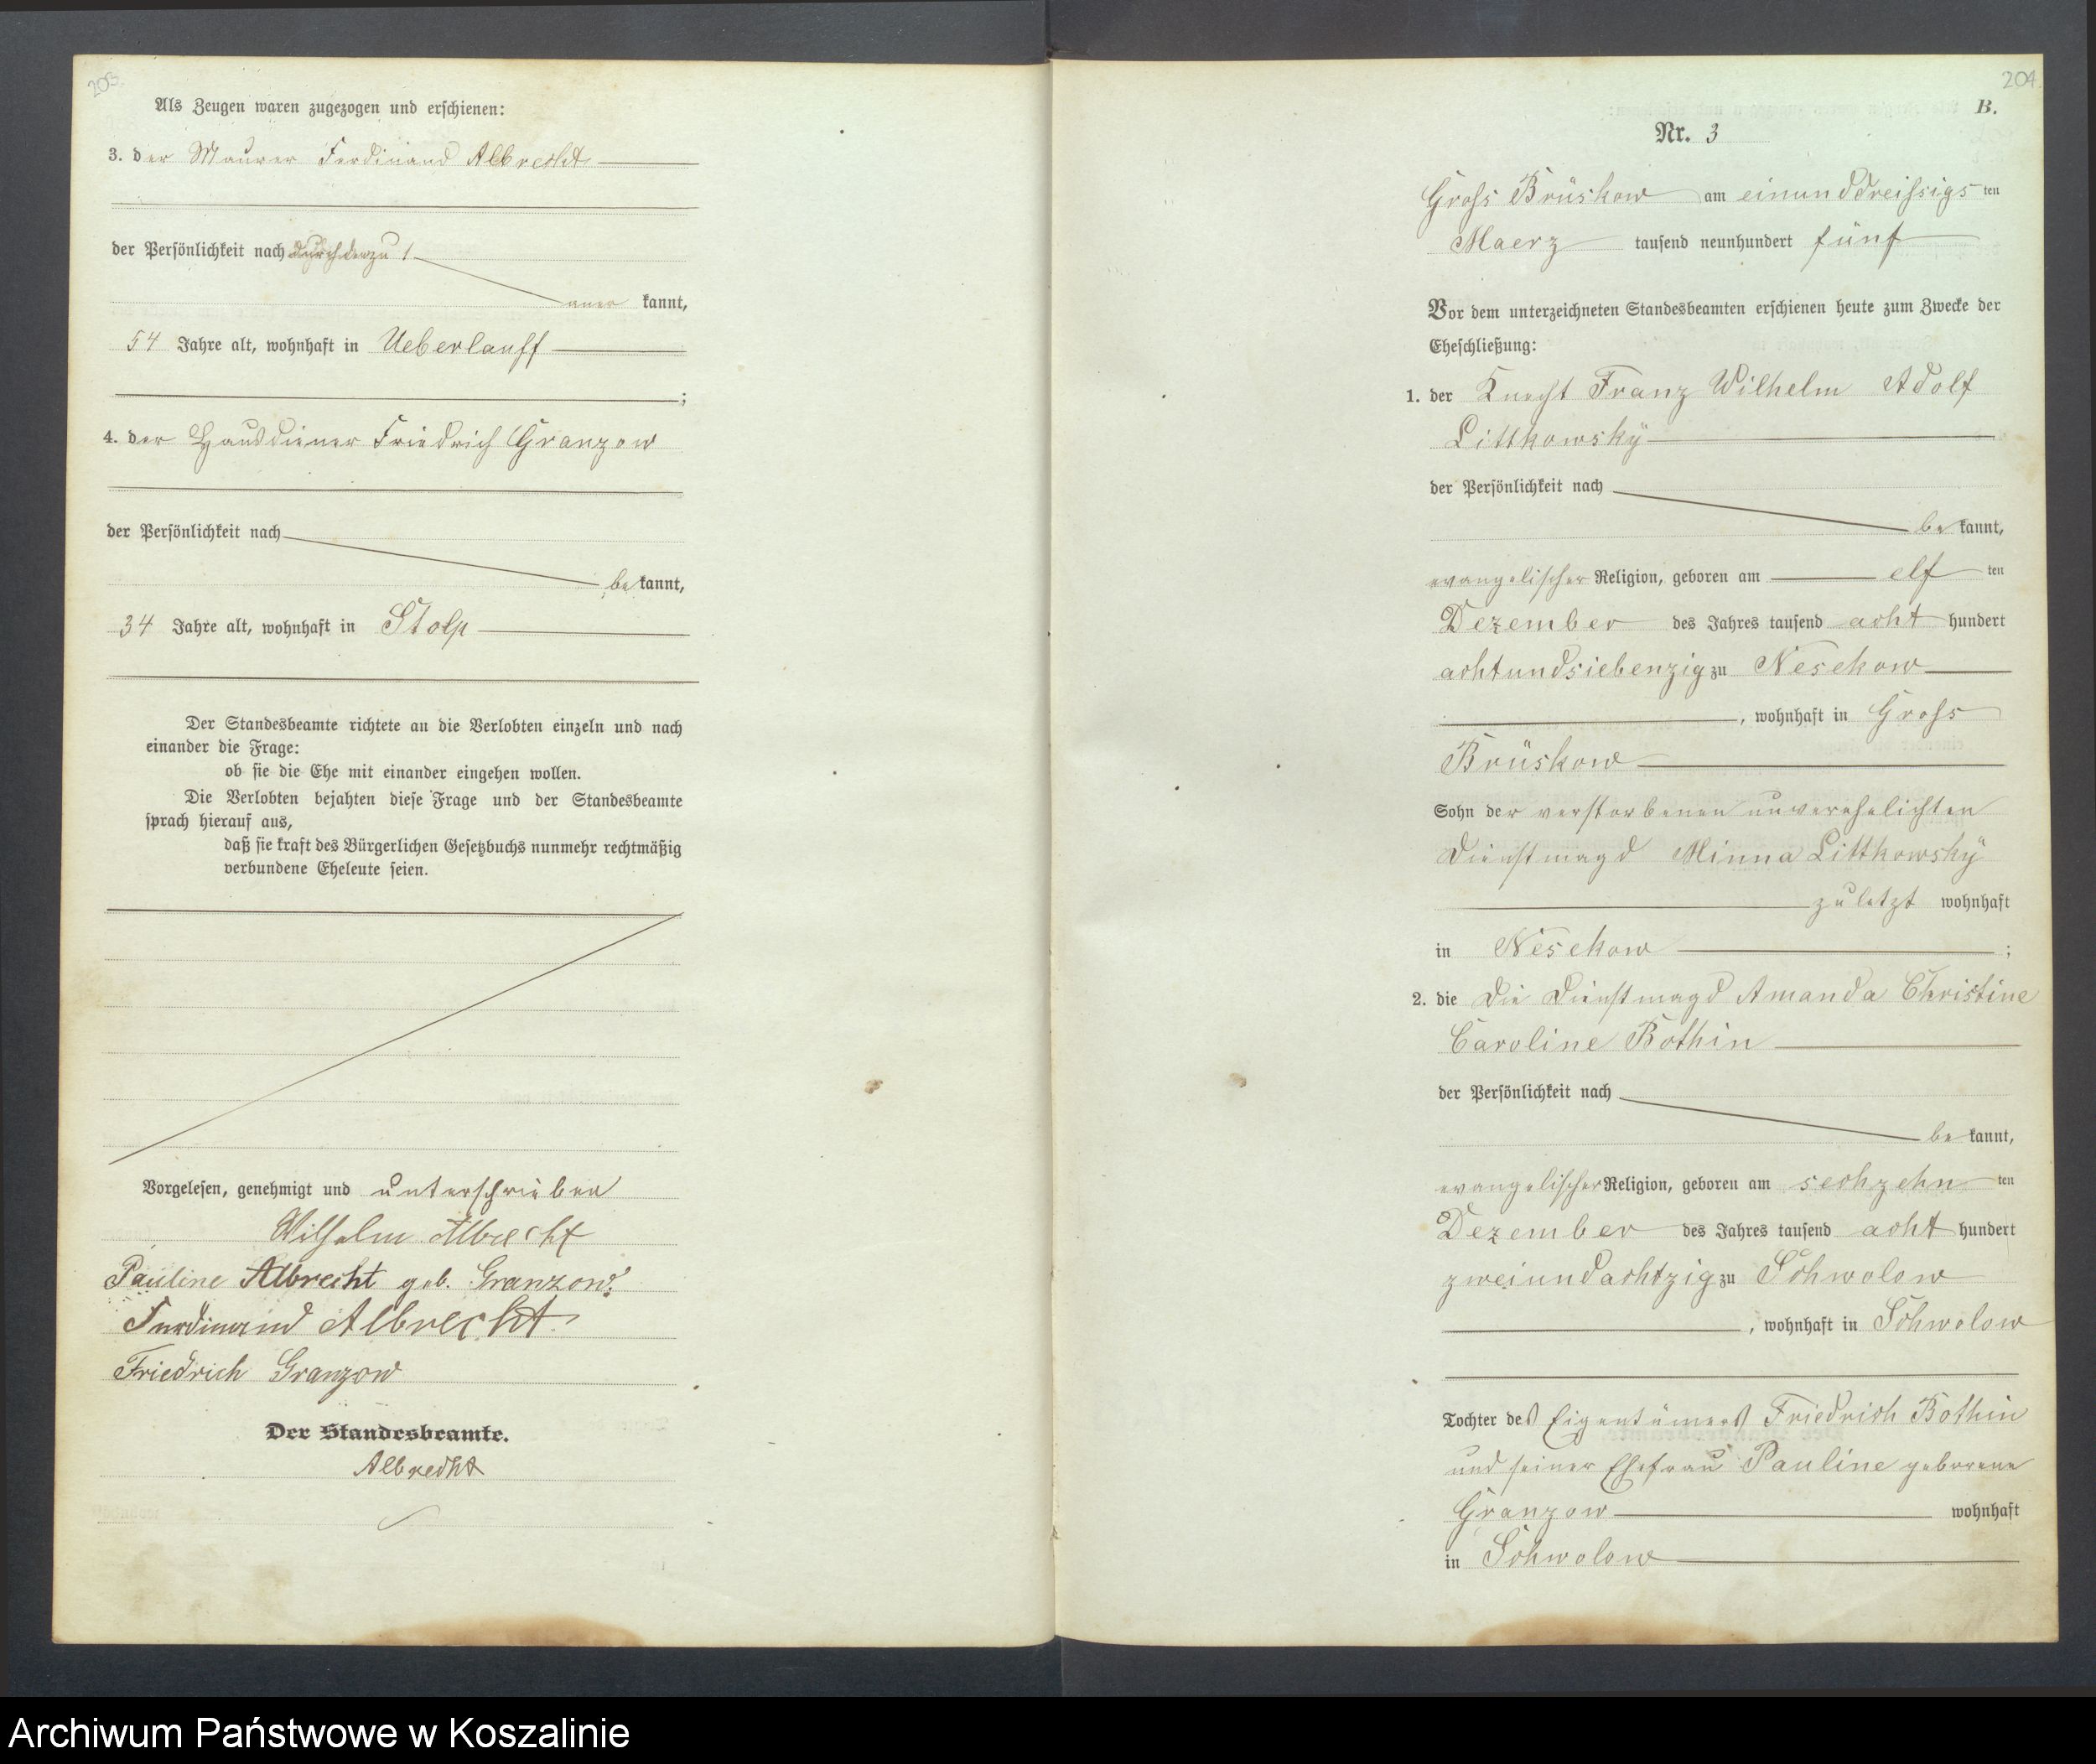 203.
Als Zeugen waren zugezogen und erschienen:
3. der Maurer Ferdinand Albrecht
der Persönlichkeit nach durch den zu 1
aner kannt,
54 Jahre alt, wohnhaft in Ueberlauff
;
4. der Hausdiener Friedrich Granzow
der Persönlichkeit nach
be kannt,
34 Jahre alt, wohnhaft in Stolp
Der Standesbeamte richtete an die Verlobten einzeln und nach
einander die Frage:
ob sie die Ehe mit einander eingehen wollen.
Die Verlobten bejahten diese Frage und der Standesbeamte
sprach hierauf aus,
daß sie kraft des Bürgerlichen Gesetzbuchs nunmehr rechtmäßig
verbundene Eheleute seien.
Vorgelesen, genehmigt und unterschrieben
Wilhelm Albrecht
Pauline Albrecht geb. Granzow.
Ferdinand Albrecht
Friedrich Granzow
Der Standesbeamte.
Albrecht
204.
B.
Nr. 3
Gross Brüskow am einunddreissigs ten
Maerz tausend neunhundert fünf
Vor dem unterzeichneten Standesbeamten erschienen heute zum Zwecke der
Eheschließung:
1. der Knecht Franz Wilhelm Adolf
Littkowsky
der Persönlichkeit nach
be kannt,
evangelischer Religion, geboren am elf ten
Dezember des Jahres tausend acht hundert
achtundsiebenzig zu Nesekow
, wohnhaft in Gross
Brüskow
Sohn der verstorbenen unverehelichten
Dienstmagd Minna Littkowsky
zuletzt wohnhaft
in Nesekow ;
2. die die Dienstmagd Amanda Christine
Caroline Bothin
der Persönlichkeit nach
be kannt,
evangelischer Religion, geboren am sechzehn ten
Dezember des Jahres tausend acht hundert
zweiundachtzig zu Schwolow
, wohnhaft in Schwolow
Tochter des Eigentümers Friedrich Bothin
und seiner Ehefrau Pauline geborene
Granzow wohnhaft
in Schwolow
Archiwum Państwowe w Koszalinie